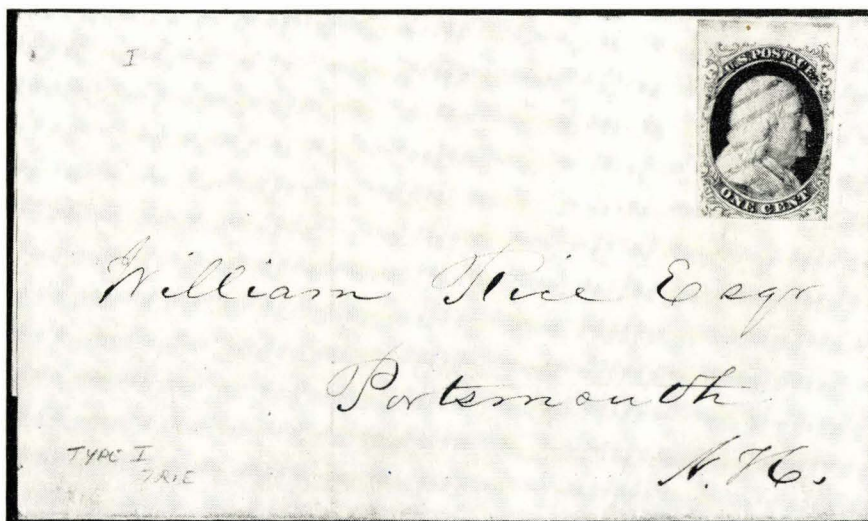 I
U.S. POSTAGE
ONE CENT
William Rice Esqr
Portsmouth
N.H.
TYPE I
7R1E